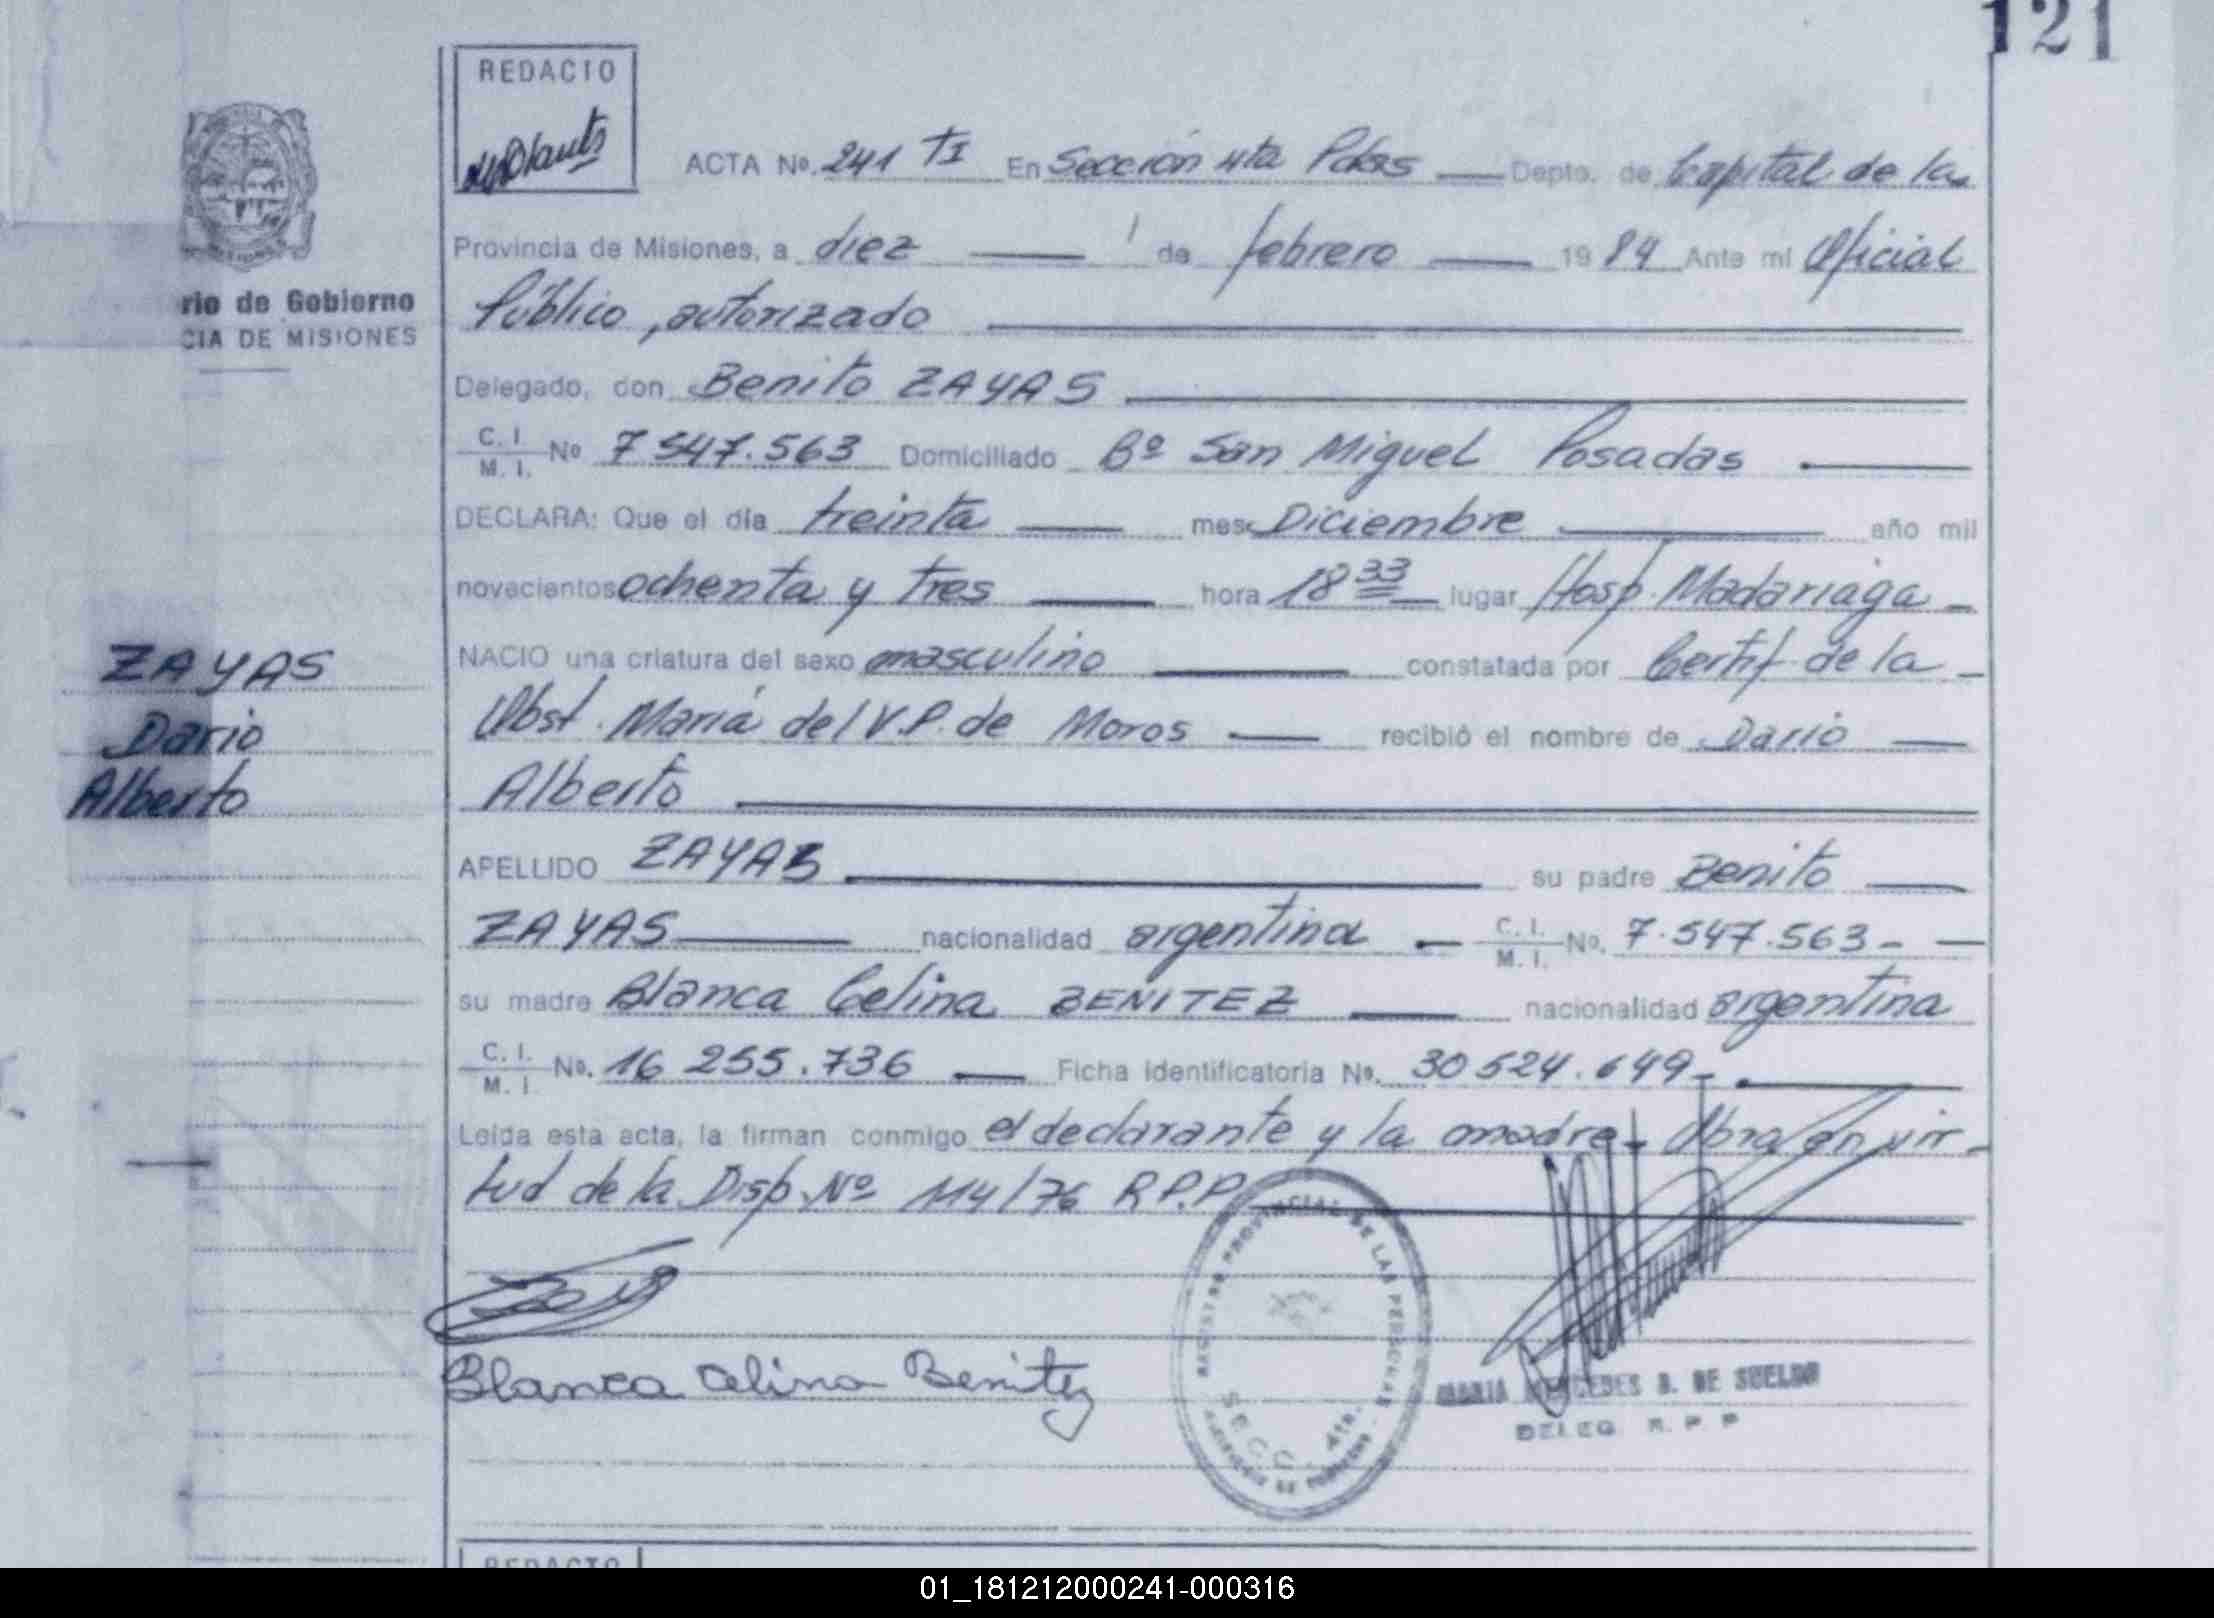 121
REDACTO
ACTA Nº. 241 TI En Sección 4ta Pdas Depto. de Capital de la
Provincia de Misiones, a diez de febrero 1984 Ante mi Oficial
Público, autorizado
rio de Gobierno
CIA DE MISIONES
Delegado, don Benito ZAYAS
C. I. / M. I. Nº 7 547.563 Domiciliado Bº San Miguel Posadas
DECLARA: Que el día treinta mes Diciembre año mil
novecientos ochenta y tres hora 18 33 lugar Hosp. Madariaga
NACIO una criatura del sexo masculino constatada por Certif. de la
Obst. María del V.P. de Moros recibió el nombre de Dario
Alberto
ZAYAS
Dario
Alberto
APELLIDO ZAYAS su padre Benito
ZAYAS nacionalidad argentina C. I. / M. I. Nº. 7.547.563-
su madre Blanca Celina BENITEZ nacionalidad argentina
C. I. / M. I. Nº. 16 255.736 Ficha identificatoria Nº. 30 524.649-
Leída esta acta, la firman conmigo el declarante y la madre. Obra en vir-
tud de la Disp. Nº 114/76 R.P.P.
Blanca Celina Benitez
REGISTRO PROVINCIAL DE LAS PERSONAS
SECC. 4ta.
MARIA MERCEDES B. DE SUELDO
DELEG. R. P. P
REDACTO
01_181212000241-000316